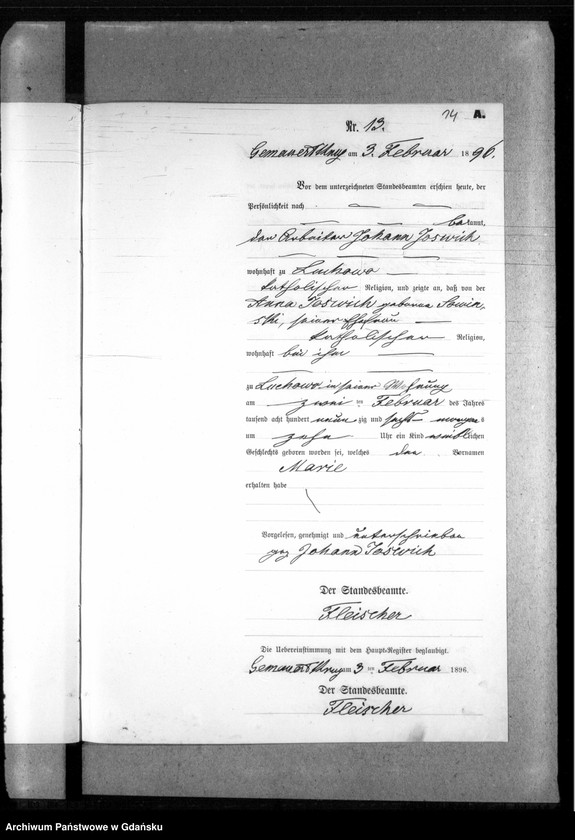 14 A.
Nr. 13.
am 3. Februar 1896.
Vor dem unterzeichneten Standesbeamten erschien heute, der
Persönlichkeit nach
bekannt,
der Arbeiter Johann Joswich
wohnhaft zu Luchowo
katholischer Religion, und zeigte an, daß von der
Anna Joswich geborene Sowin-
ski, seiner Ehefrau
katholischer Religion,
wohnhaft bei ihm
zu Luchowo in seiner Wohnung
am zwei ten Februar des Jahres
tausend acht hundert neun zig und sechs morgens
um zehn Uhr ein Kind weiblichen
Geschlechts geboren worden sei, welches den Vornamen
Marie
erhalten habe
Vorgelesen, genehmigt und unterschrieben
gez Johann Joswich
Der Standesbeamte.
Fleischer
Die Uebereinstimmung mit dem Haupt-Register beglaubigt.
am 3 ten Februar 1896.
Der Standesbeamte.
Fleischer
Archiwum Państwowe w Gdańsku